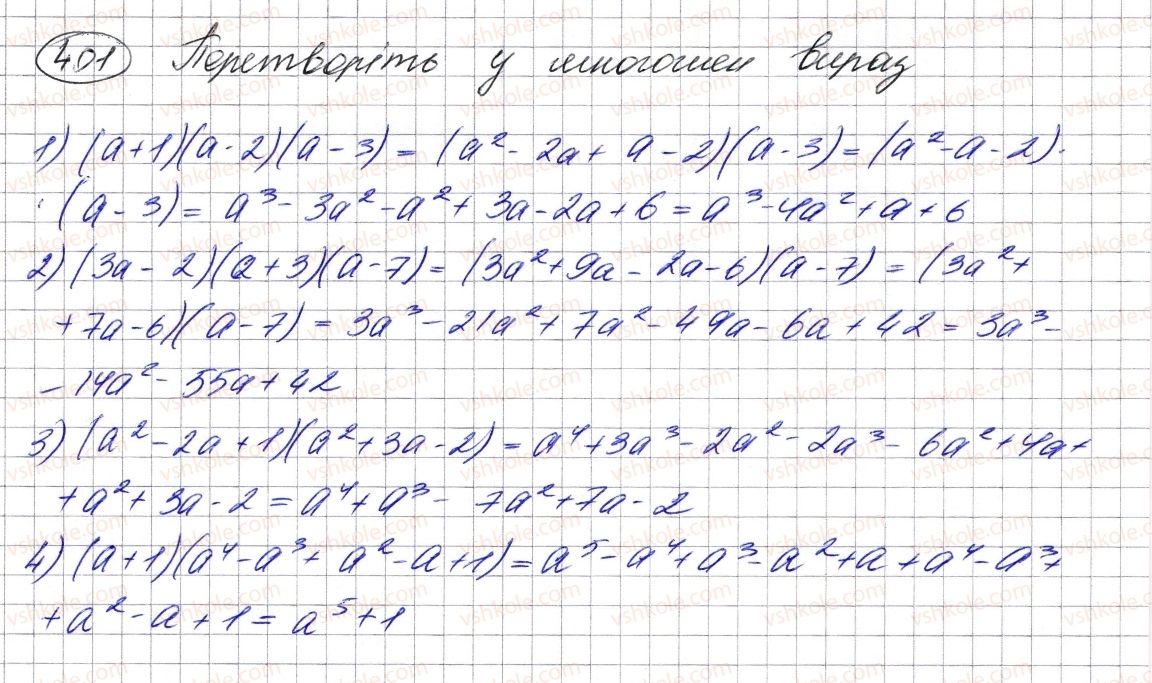 401 Перетворіть у многочлен вираз
1) (a+1)(a-2)(a-3) = (a² - 2a + a - 2)(a-3) = (a² - a - 2)·
·(a-3) = a³ - 3a² - a² + 3a - 2a + 6 = a³ - 4a² + a + 6
2) (3a - 2)(a+3)(a-7) = (3a² + 9a - 2a - 6)(a-7) = (3a² +
+ 7a - 6)(a-7) = 3a³ - 21a² + 7a² - 49a - 6a + 42 = 3a³ -
- 14a² - 55a + 42
3) (a² - 2a + 1)(a² + 3a - 2) = a⁴ + 3a³ - 2a² - 2a³ - 6a² + 4a +
+ a² + 3a - 2 = a⁴ + a³ - 7a² + 7a - 2
4) (a+1)(a⁴ - a³ + a² - a + 1) = a⁵ - a⁴ + a³ - a² + a + a⁴ - a³ +
+ a² - a + 1 = a⁵ + 1